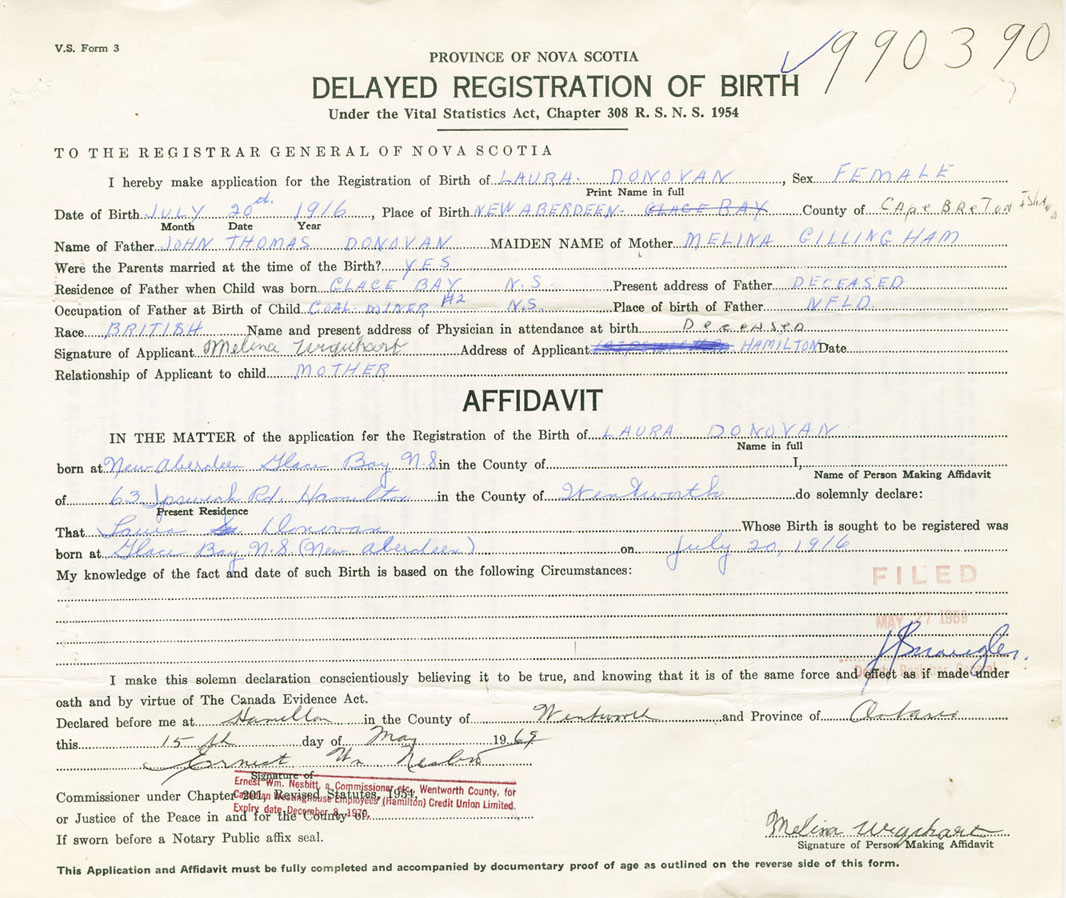 V.S. Form 3
990390
PROVINCE OF NOVA SCOTIA
DELAYED REGISTRATION OF BIRTH
Under the Vital Statistics Act, Chapter 308 R. S. N. S. 1954
TO THE REGISTRAR GENERAL OF NOVA SCOTIA
I hereby make application for the Registration of Birth of LAURA DONOVAN, Sex FEMALE
Print Name in full
Date of Birth JULY 20 1916, Place of Birth NEW ABERDEEN - GLACE BAY County of CApe BReTON
Month Date Year
Name of Father JOHN THOMAS DONOVAN MAIDEN NAME of Mother MELINA GILLINGHAM
Were the Parents married at the time of the Birth? YES
Residence of Father when Child was born GLACE BAY N.S. Present address of Father DECEASED
Occupation of Father at Birth of Child COAL MINER #2 N.S. Place of birth of Father NFLD.
Race BRITISH Name and present address of Physician in attendance at birth Deceased
Signature of Applicant Melina Urquhart Address of Applicant HAMILTON Date
Relationship of Applicant to child MOTHER
AFFIDAVIT
IN THE MATTER of the application for the Registration of the Birth of LAURA DONOVAN
Name in full
born at New Aberdeen Glace Bay N.S. in the County of I,
Name of Person Making Affidavit
of 63 Ipswich Rd. Hamilton in the County of Wentworth do solemnly declare:
Present Residence
That Laura Donovan Whose Birth is sought to be registered was
born at Glace Bay N.S. (New Aberdeen) on July 20, 1916
My knowledge of the fact and date of such Birth is based on the following Circumstances:
FILED
MAY 27 1969
Deputy Registrar General
I make this solemn declaration conscientiously believing it to be true, and knowing that it is of the same force and effect as if made under
oath and by virtue of The Canada Evidence Act.
Declared before me at Hamilton in the County of Wentworth and Province of Ontario
this 15th day of May 1969
Ernest Wm Nesbitt
Signature of
Ernest Wm. Nesbitt, a Commissioner etc., Wentworth County, for
Canadian Westinghouse Employees (Hamilton) Credit Union Limited.
Expiry date, December 8, 1970.
Commissioner under Chapter 201, Revised Statutes, 1954,
or Justice of the Peace in and for the County of,
If sworn before a Notary Public affix seal.
Melina Urquhart
Signature of Person Making Affidavit
This Application and Affidavit must be fully completed and accompanied by documentary proof of age as outlined on the reverse side of this form.